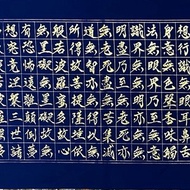 身意無色聲香味觸
法無眼界乃至無意
識界無無明亦無無
明盡乃至無老死亦
無老死盡無苦集滅
道無智亦無得以無
所得故菩提薩埵依
般若波羅蜜多故心
無罣礙無罣礙故無
有恐怖遠離顛倒夢
想究竟涅槃三世諸